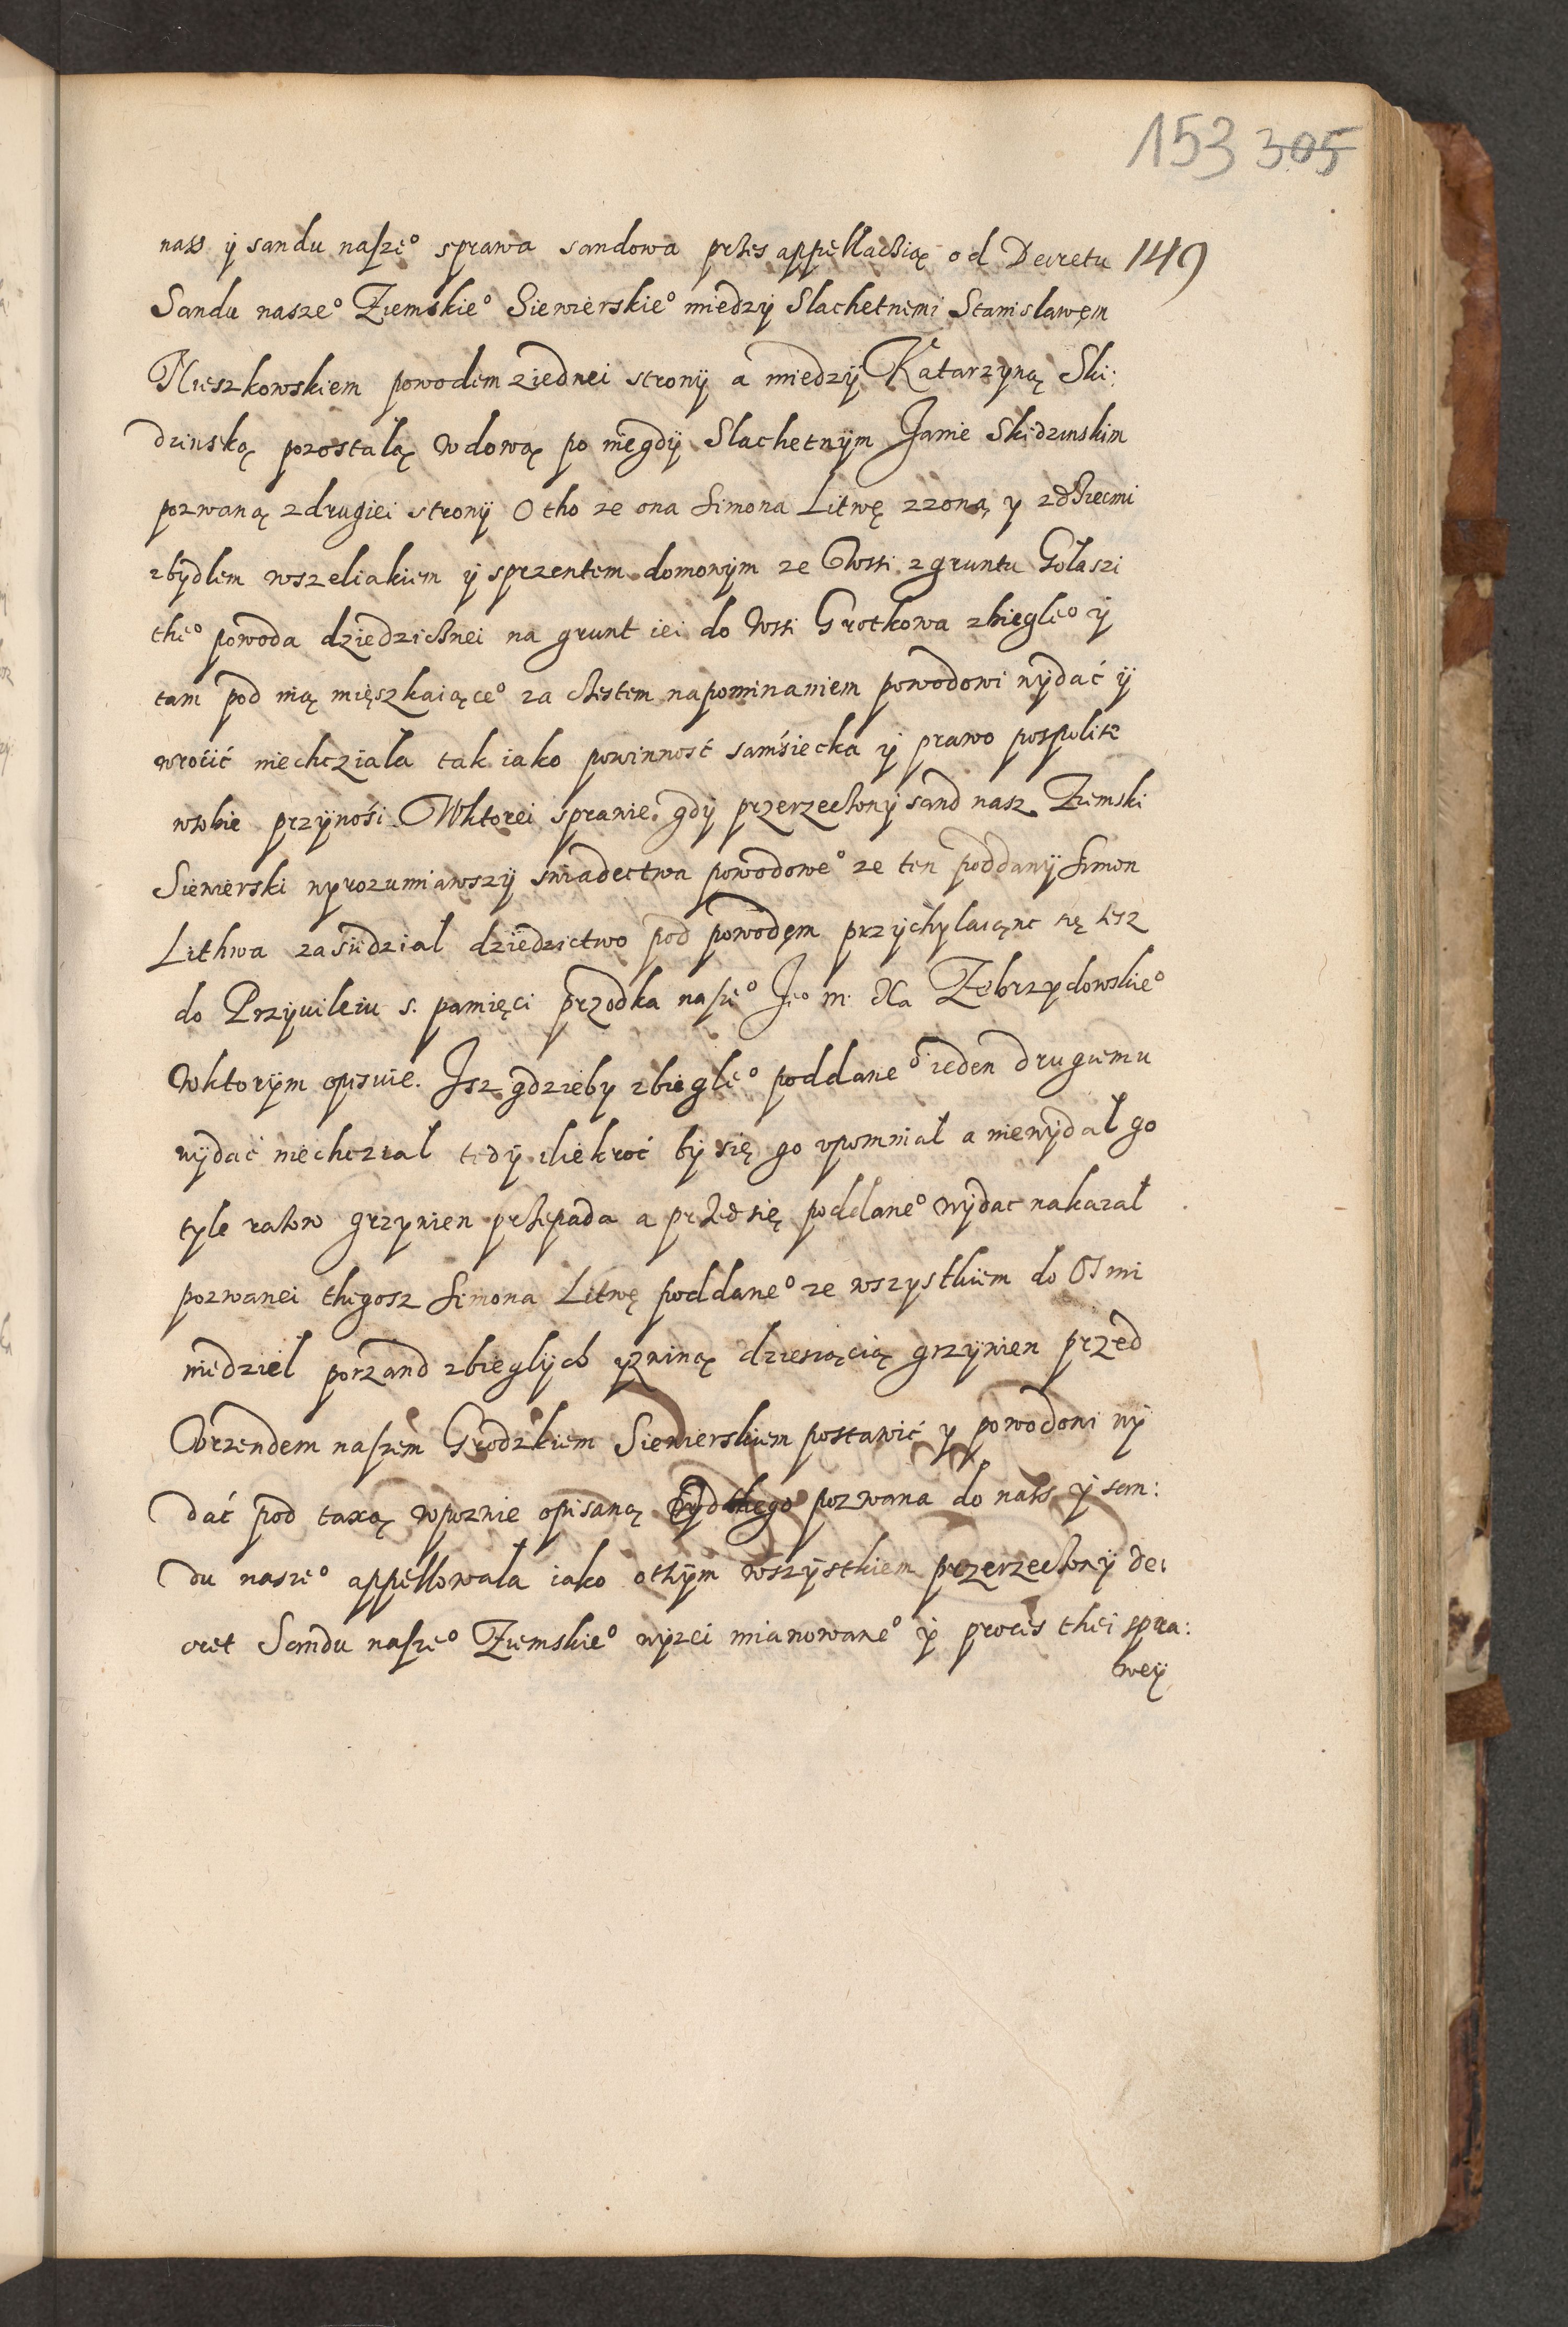 153 305
nass ÿ sandu naszeº sprawa sandowa przes appellaczią od Decretu 149
Sandu naszeº Ziemskieº Siewierskieº miedzÿ Slachetnemi Stanislawem
Mieszkowskiem powodem ziednei stronÿ a miedzÿ Katarzÿną Ski:
dzinską pozostalą wdową po niegdÿ Slachetnÿm Janie Skidzinskim
pozwaną zdrugiei stronÿ O tho ze ona Simona Litwę zzoną y zdziecmi
zbÿdlem wszeliakiem ÿ sprzentem domowÿm ze Wssi zgruntu Golaszi
theº powoda dziedzicznei na grunt iei do Wssi Grotkowa zbiegleº ÿ
tam pod nią mięszkaiąceº za czestem napominaniem powodowi wÿdać ÿ
wrócić niechcziala tak iako powinność samśiecka ÿ prawo pospolite
wsobie przÿnośi. Wktorei sprawie gdÿ przerzeczonÿ sand nasz Ziemski
Siewierski wyrozumiawszÿ swiadectwa powodoweº ze ten poddanÿ Simon
Lithwa zasiedzial dziedzictwo pod powodem przÿchylaiąnc się tesz
do Przÿwileiu s. pamięci przodka naszeº Jeº m. Xa Zebrzydowskieº
Wktorÿm opisuie. Isz gdzieby zbiegleº poddaneº ieden drugiemu
wÿdać niechczial tedÿ ilekroć bÿ się go vpomnial a niewÿdal go
tyle razow grzywien przepada a przedsię poddaneº wÿdac nakazal
pozwanei thegosz Simona Litwę poddaneº ze wszystkiem do Osmi
niedziel porzand zbieglÿch zwiną dziesiącią grzÿwien przed
Vrzendem naszem Grodzkiem Siewierskiem postawić y powodowi wÿ
dać pod taxą wpozwie opisaną Od thego pozwana do nass ÿ san:
du naszeº appellowala iako othÿm wszÿstkiem przerzeczonÿ de:
cret Sandu naszeº Ziemskieº wÿzei mianowaneº ÿ proces thei spra:
weÿ